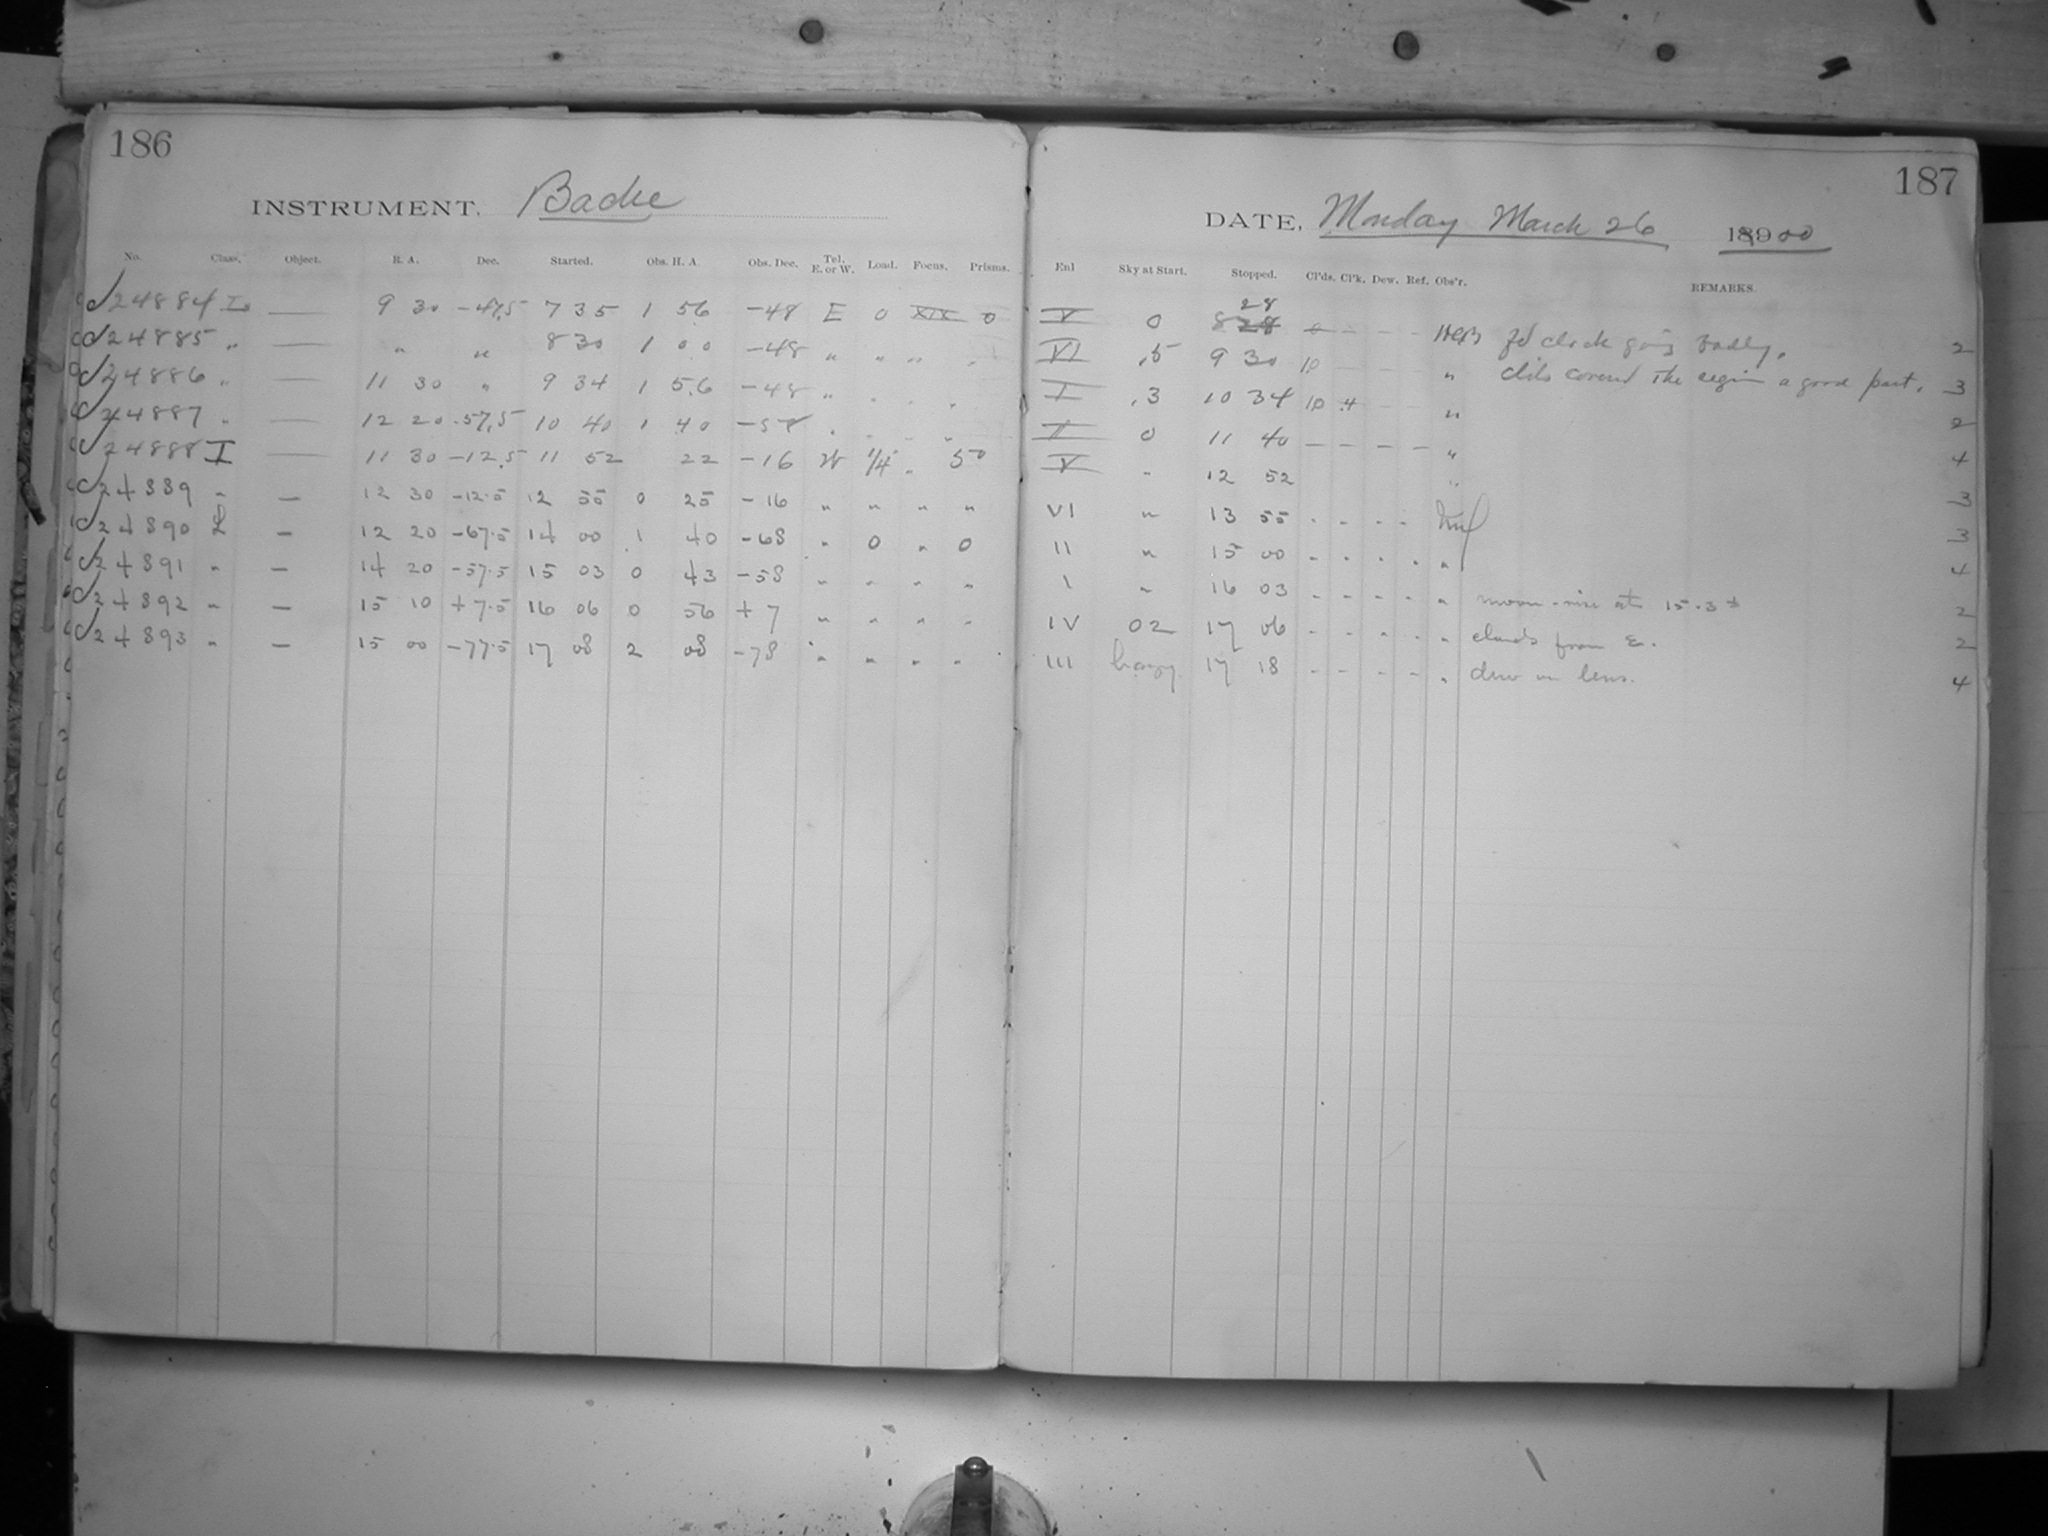 186
INSTRUMENT, Bache
No. Class. Object. R. A. Dec. Started. Obs. H. A. Obs. Dec. Tel. E. or W. Load. Focus. Prisms.
24884 — 9 30 -47.5 7 35 1 56 -48 E 0 XIX 0
24885 " — " " 8 30 1 00 -48 " " "
24886 " — 11 30 " 9 34 1 56 -48 "
24887 " — 12 20 -57.5 10 40 1 40
24888 I — 11 30 -12.5 11 52 22 -16 W 1/4 " 50
24889 " — 12 30 -12.5 12 55 0 25 -16 " " " "
24890 — 12 20 -67.5 14 00 1 40 -68 " 0 " 0
24891 " — 14 20 -57.5 15 03 0 43 -58 " " " "
24892 " — 15 10 +7.5 16 06 0 56 +7 " " " "
24893 " — 15 00 -77.5 17 08 2 08 -78 " " " "
187
DATE, Monday March 26 1900
Enl Sky at Start. Stopped. Cl'ds. Cl'k. Dew. Ref. Obs'r. REMARKS.
V 0 8 28 28 clock going badly. 2
VI .5 9 30 10 - - - " clds covered the region a good part. 3
I .3 10 34 10 .4 - - " 2
II 0 11 40 - - - - " 4
V " 12 52 " 3
VI " 13 55 - - - - 3
II " 15 00 - - - - " 4
I " 16 03 - - - - " moon-rise at 15.3± 2
IV 02 17 06 - - - - " clouds from E. 2
III hazy 17 18 - - - - " dew on lens. 4